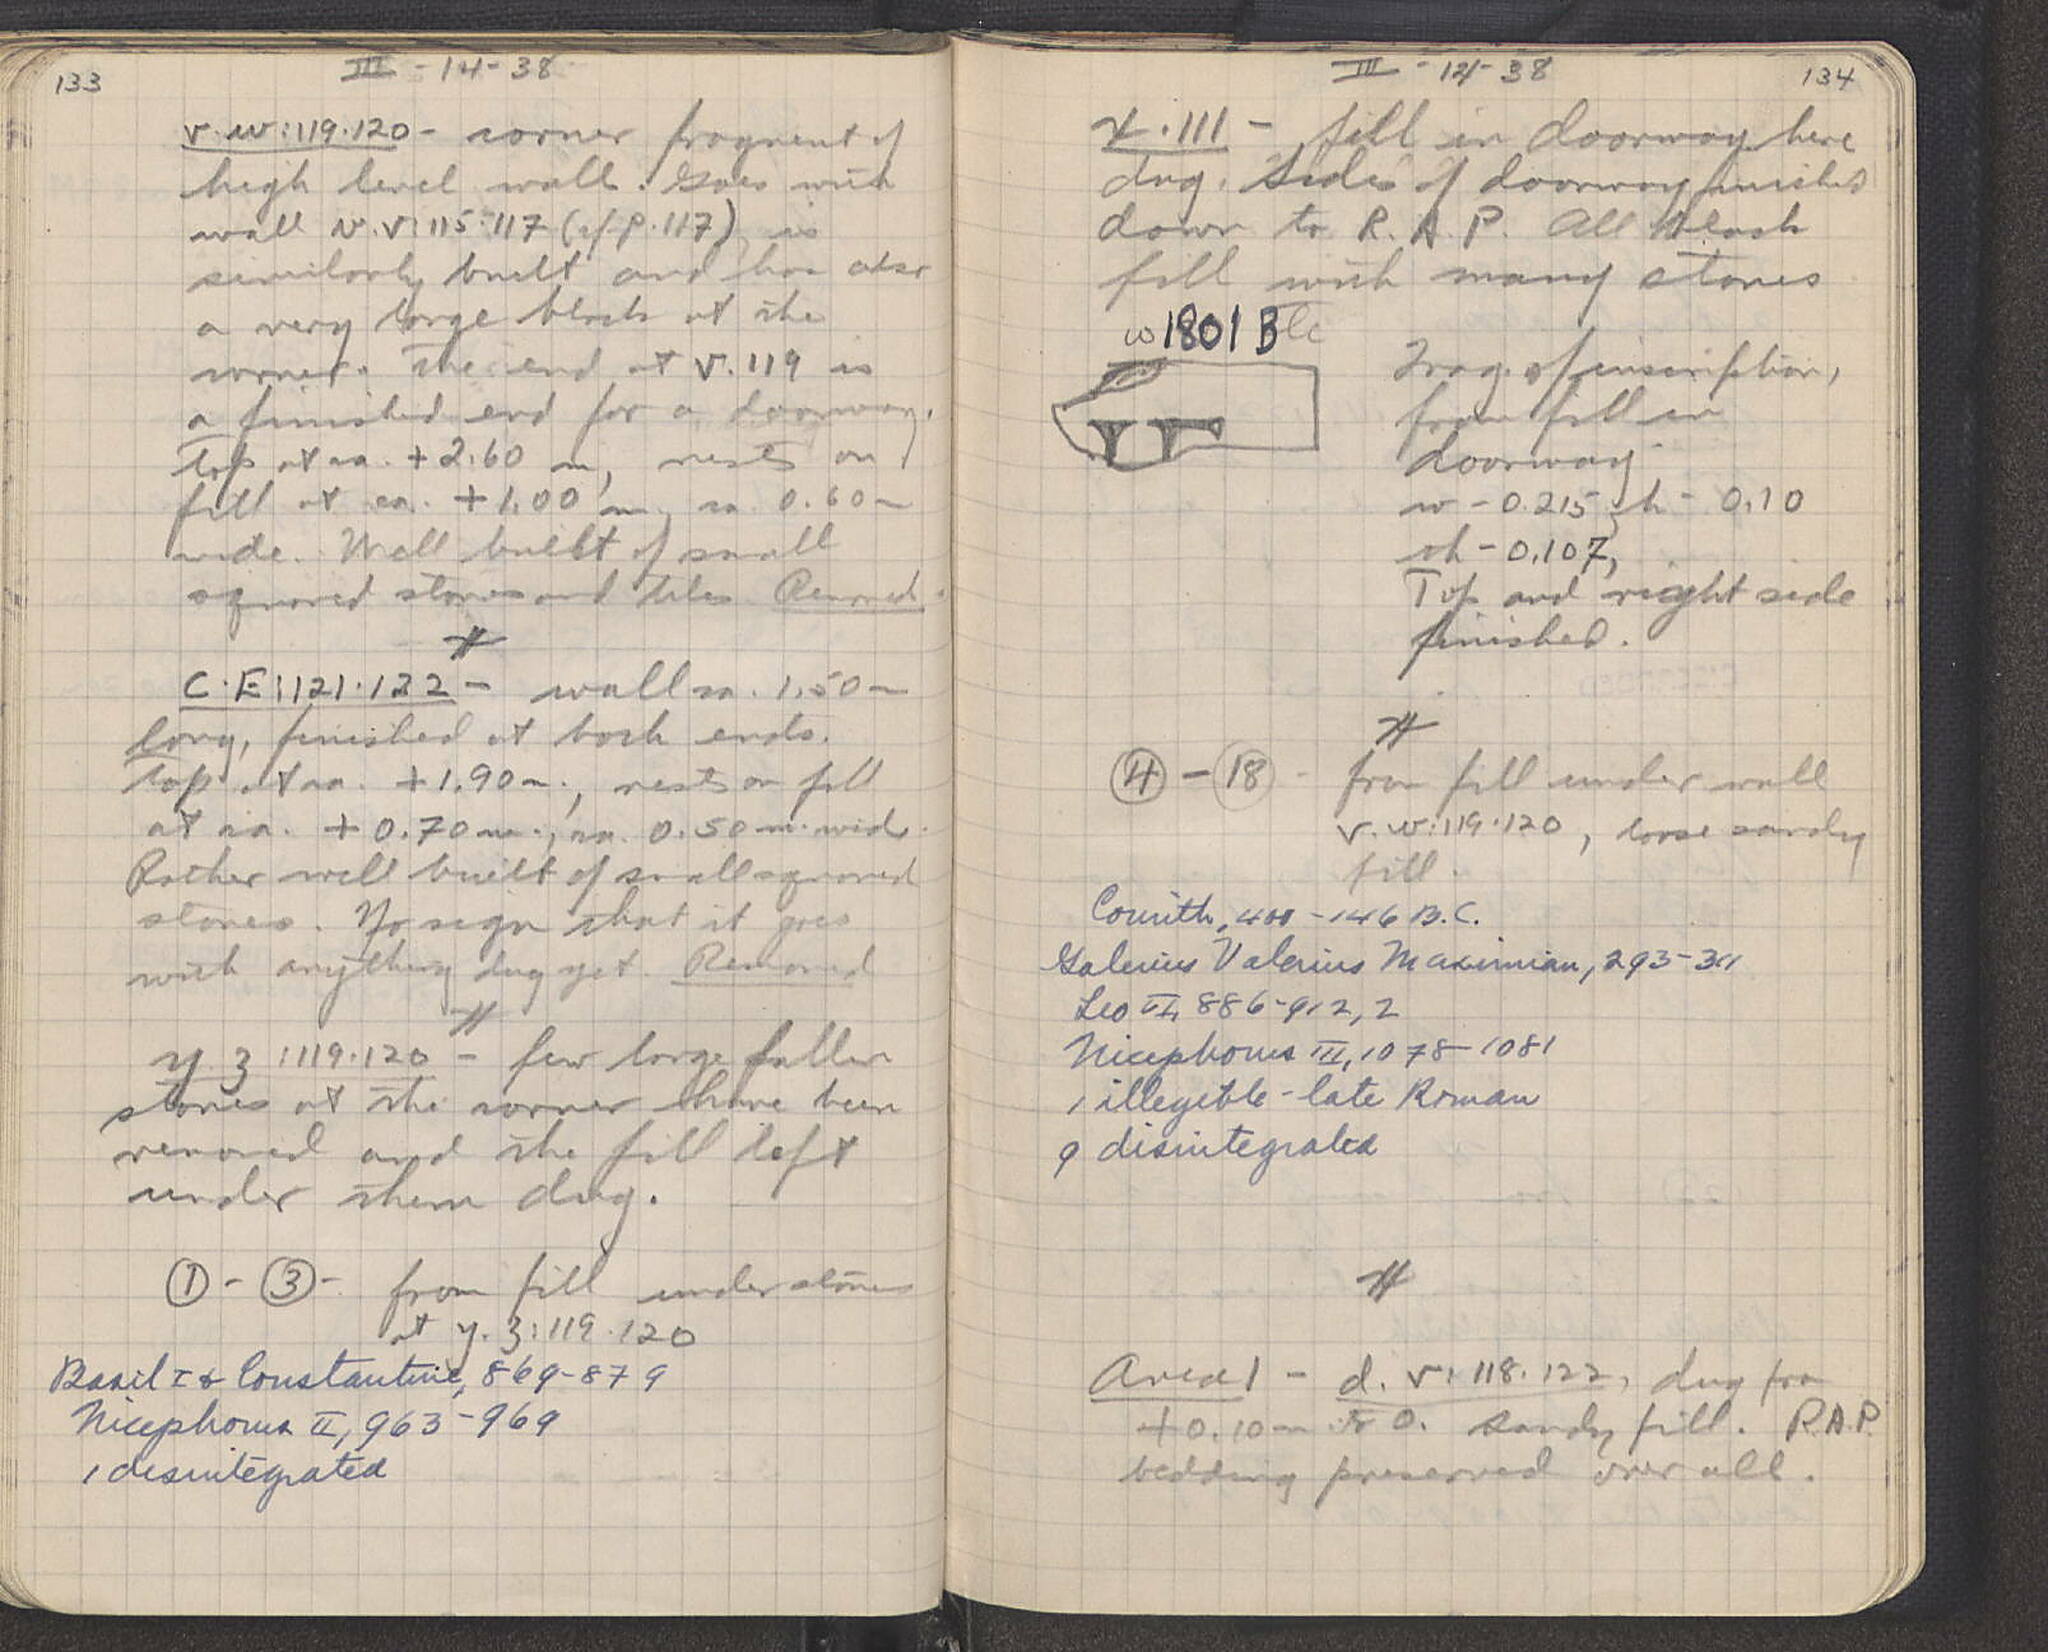 133
III - 14 - 38
v.w:119.120 - corner fragment of
high level wall. Goes with
wall v.v:115.117 (cf p. 117), is
similarly built and has also
a very large block at the
corner. The end at v.119 is
a finished end for a doorway.
Top at ca. +2.60 m, rests on
fill at ca. +1.00 m, ca 0.60m
wide. Well built of small
squared stones and tiles Removed.
#
C.E:121.122 - wall ca. 1.50m
long, finished at both ends.
top at ca. +1.90m., rests on fill
at ca. +0.70m., ca. 0.50m. wide.
Rather well built of small squared
stones. No sign that it goes
with anything dug yet. Removed
#
y.z:119.120 - few large fallen
stones at the corner have been
removed and the fill left
under them dug.
① - ③ - from fill under stones
at y.z:119.120
Basil I & Constantine, 869-879
Nicephorus II, 963-969
1 disintegrated
III - 14 - 38
134
x.111 - fill in doorway here
dug. Sides of doorway finished
down to R.A.P. All black
fill with many stones
1801 B
Frag. of inscription,
from fill in
doorway
w - 0.215, h - 0.10
th - 0.107,
Top and right side
finished.
#
④ - ⑱ - from fill under wall
v.w:119.120, loose sandy
fill.
Corinth, 400-146 B.C.
Galerius Valerius Maximian, 293-311
Leo VI, 886-912, 2
Nicephorus III, 1078-1081
1 illegible - late Roman
9 disintegrated
#
Area 1 - d.v:118.122, dug from
+0.10m to 0. sandy fill. R.A.P.
bedding preserved over all.